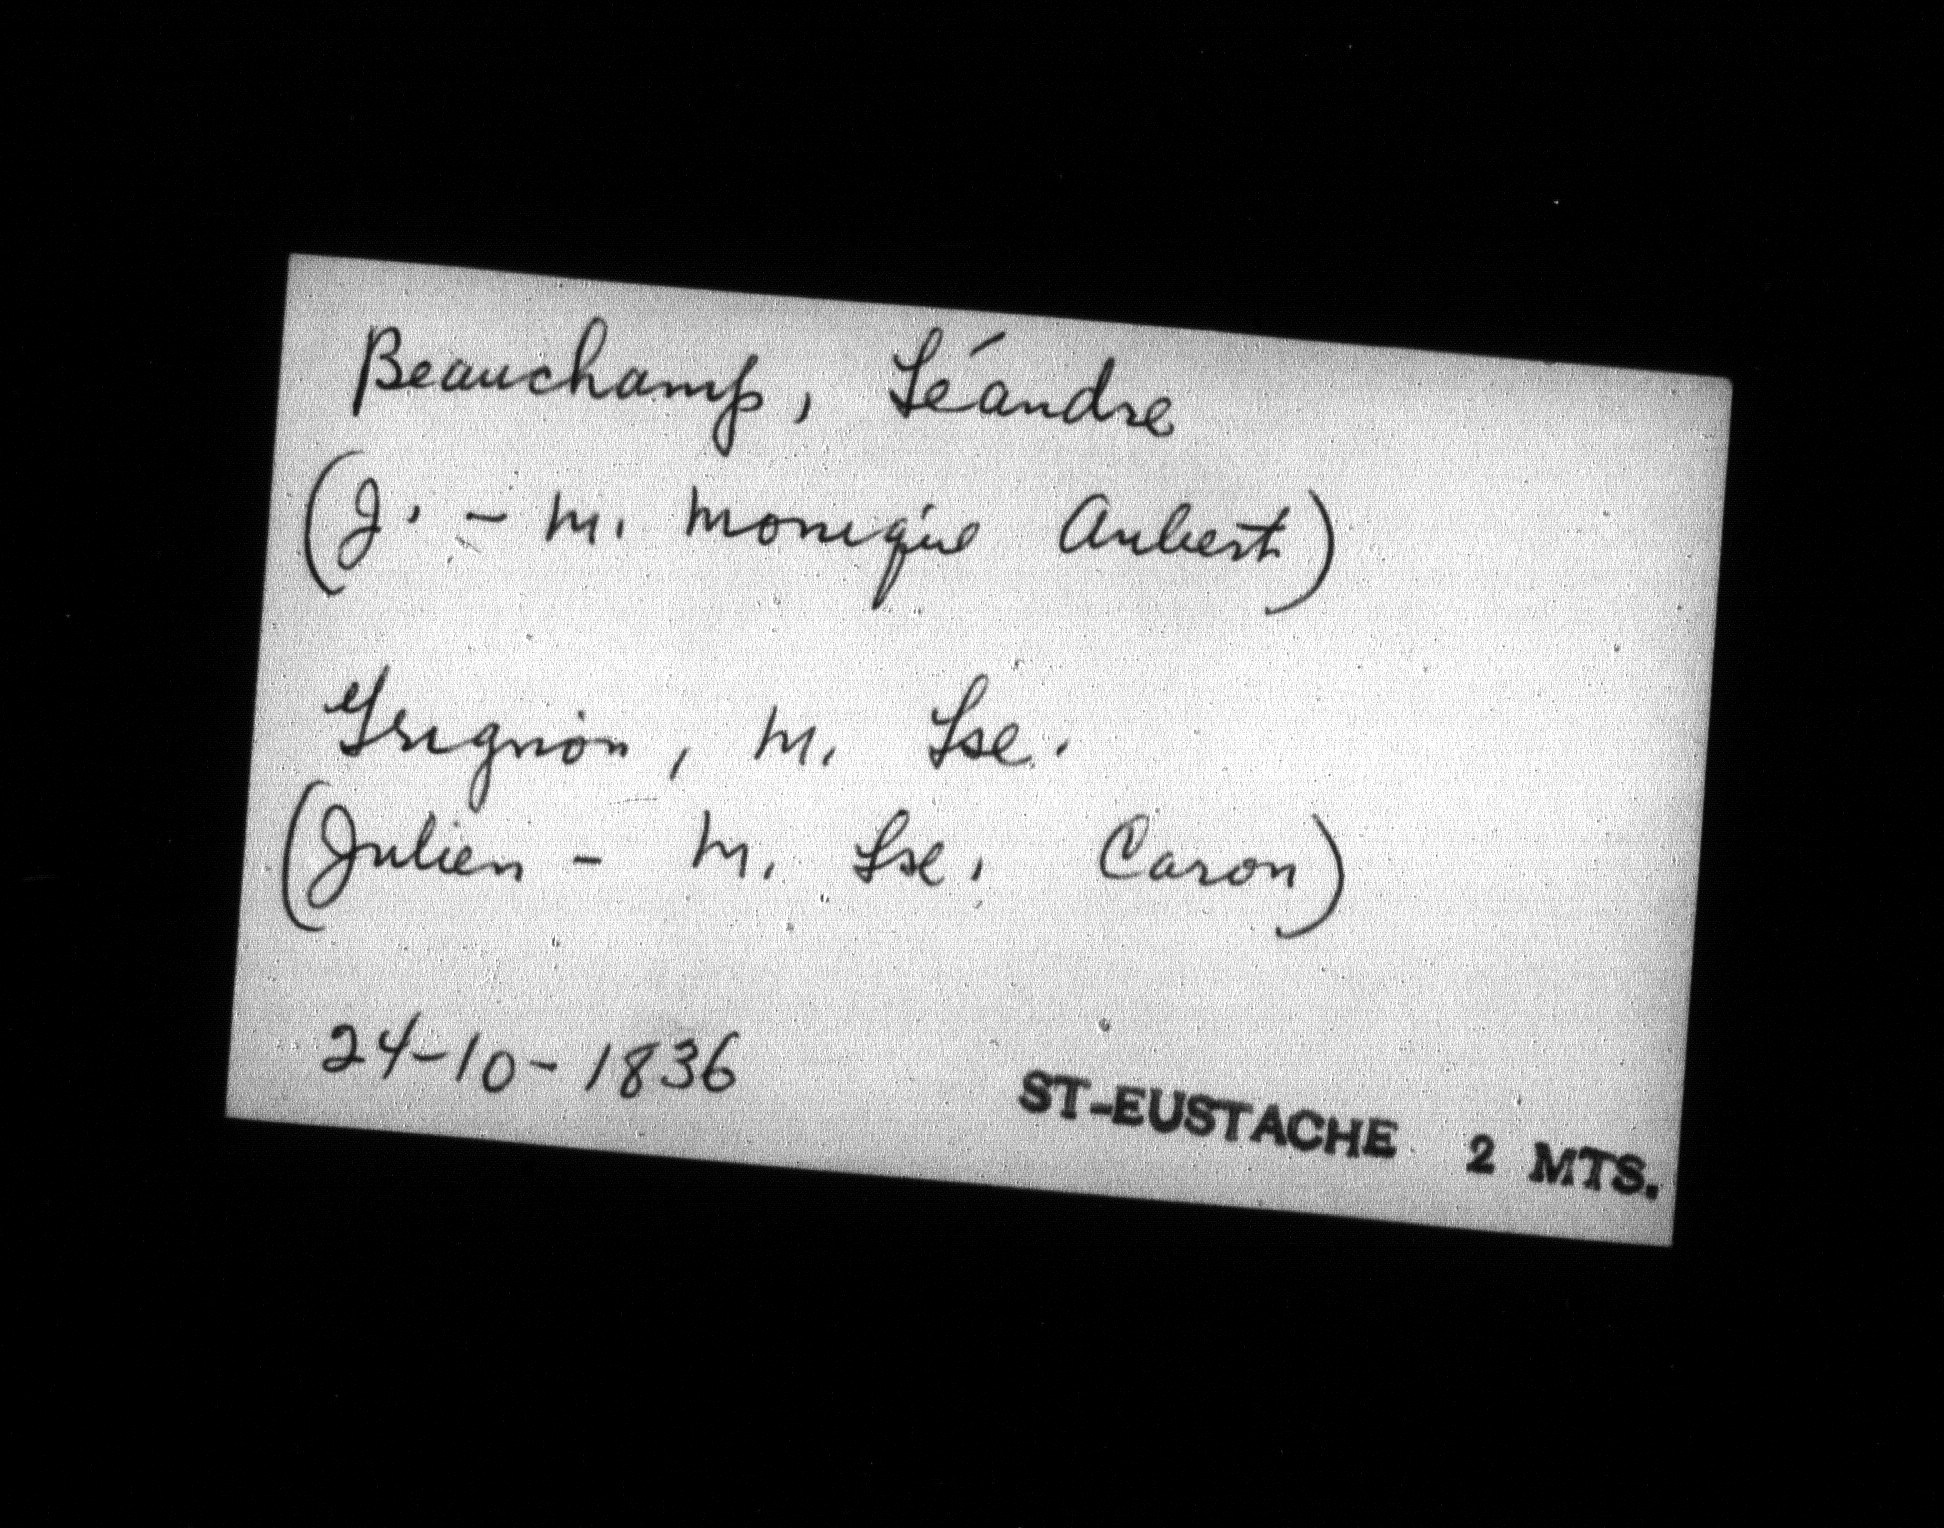 Beauchamp, Léandre
(J. - M. Monique Aubert)
Grignon, M. Lse.
(Julien - M. Lse. Caron)
24-10-1836
ST-EUSTACHE 2 MTS.